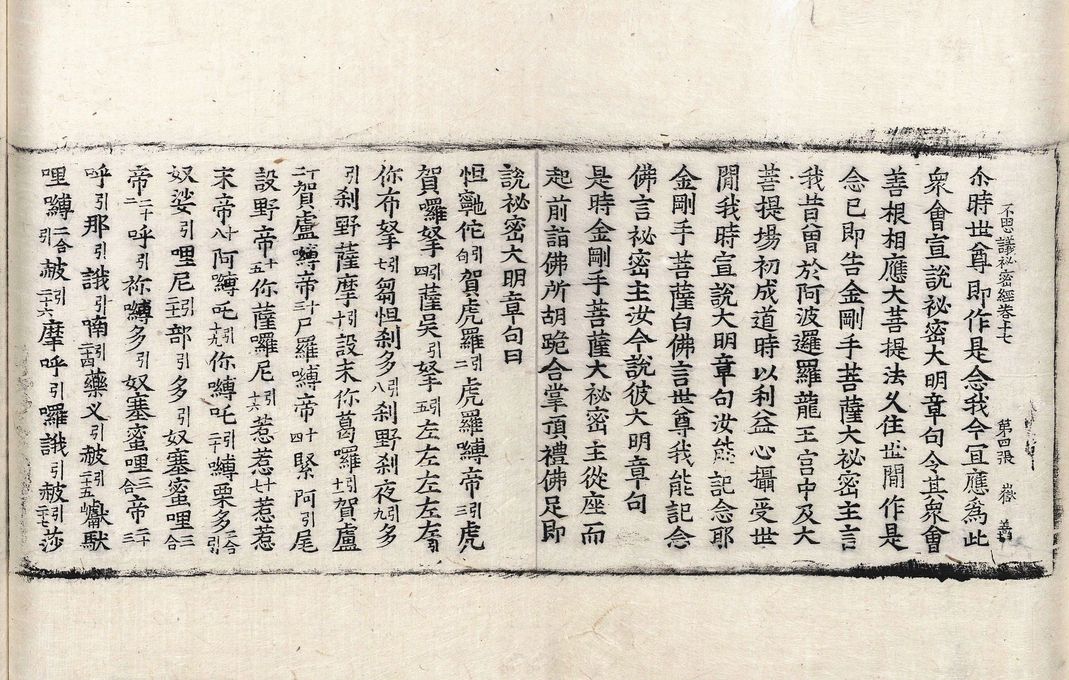 不思議祕密經卷十七 第四張 嶽
尒時世尊即作是念我今宜應為此
衆會宣說祕密大明章句令其衆會
善根相應大菩提法乆住世閒作是
念已即告金剛手菩薩大祕密主言
我昔曾於阿波邏羅龍王宮中及大
菩提場初成道時以利益心攝受世
閒我時宣說大明章句汝能記念耶
金剛手菩薩白佛言世尊我能記念
佛言祕密主汝今說彼大明章句
是時金剛手菩薩大祕密主從座而
起前詣佛所胡跪合掌頂禮佛足即
說祕密大明章句曰
怛䭾佗引句賀虎羅引二虎羅嚩帝三引虎
賀囉拏四引薩吴引拏五引左左左左左
你布拏七引芻怛刹多八引刹野刹夜九引多
引刹野薩摩十引設末你葛囉十一引賀盧
十二賀盧嚩帝十三尸羅嚩帝十四緊阿引尾
設野帝十五你薩囉尼十六引惹惹十七惹惹
末帝十八阿嚩吒十九引你嚩吒二十引嚩栗多二合引
奴娑引哩尼二十一引部引多引奴塞蜜哩三合
帝二十二呼引祢嚩多引奴塞蜜哩三合帝二十三
呼引那引誐引喃二十四引藥叉引赦二十五引獻馱
哩嚩二合引赦二十六引摩呼引囉誐引赦二十七引莎